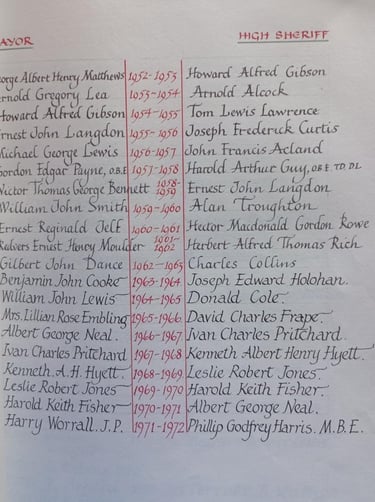 AYOR HIGH SHERIFF
eorge Albert Henry Matthews 1952-1953 Howard Alfred Gibson
rnold Gregory Lea 1953-1954 Arnold Alcock
Howard Alfred Gibson 1954-1955 Tom Lewis Lawrence
rnest John Langdon 1955-1956 Joseph Frederick Curtis
Michael George Lewis 1956-1957 John Francis Acland
Gordon Edgar Payne, O.B.E 1957-1958 Harold Arthur Guy, O.B.E. T.D. D.L
Victor Thomas George Bennett 1958-1959 Ernest John Langdon
William John Smith 1959-1960 Alan Troughton
Ernest Reginald Jelf 1960-1961 Hector Macdonald Gordon Rowe
Ernest Henry Moulder 1961-1962 Herbert Alfred Thomas Rich
Gilbert John Dance 1962-1963 Charles Collins
Benjamin John Cooke 1963-1964 Joseph Edward Holohan.
William John Lewis 1964-1965 Donald Cole.
Mrs. Lillian Rose Embling 1965-1966 David Charles Frape.
Albert George Neal. 1966-1967 Ivan Charles Pritchard.
Ivan Charles Pritchard 1967-1968 Kenneth Albert Henry Hyett.
Kenneth. A. H. Hyett. 1968-1969 Leslie Robert Jones.
Leslie Robert Jones 1969-1970 Harold Keith Fisher.
Harold Keith Fisher 1970-1971 Albert George Neal.
Harry Worrall. J.P. 1971-1972 Phillip Godfrey Harris. M.B.E.